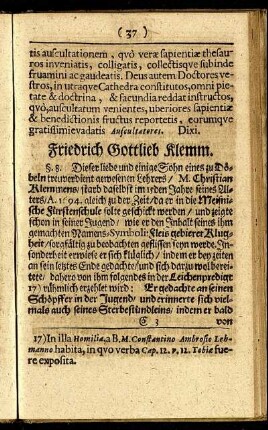 (37)
tis auscultationem, quò veræ sapientiæ thesau-
ros inveniatis, colligatis, collectisqve subinde
fruamini ac gaudeatis. Deus autem Doctores ve-
stros, in utraqve Cathedra constitutos, omni pie-
tate & doctrina, & facundia reddat instructos,
qvò, auscultatum venientes, uberiores sapientiæ
& benedictionis fructus reportetis, eorumqve
gratissimi evadatis Auscultatores. Dixi.
Friedrich Gottlieb Klemm.
§. 8. Dieser liebe und einige Sohn eines zu Dö-
beln treuverdient gewesenen Lehrers / M. Christian
Klemmens / starb daselbst im 15den Jahre seines Al-
ters / A. 1694. gleich zu der Zeit / da er in die Meißni-
sche Fürstenschule solte geschickt werden / und zeigte
schon in seiner Jugend / wie er den Inhalt seines ihm
gemachten Namens-Symboli: Fleis gebieret Klug-
heit / sorgfältig zu beobachten geflissen seyn werde. In-
sonderheit erwiese er sich klüglich / indem er bey zeiten
an sein letztes Ende gedachte / und sich darzu wol berei-
tete / daher von ihm folgendes in der Leichenpredigt
17) rühmlich erzehlet wird: Er gedachte an seinen
Schöpffer in der Jugend / und erinnerte sich viel-
mals auch seines Sterbestündleins, indem er bald
C 3 von
17) In illa Homiliâ, a B. M. Constantino Ambrosio Leh-
manno habita, in qvo verba Cap. 12. v. 12. Tobiæ fue-
re exposita.